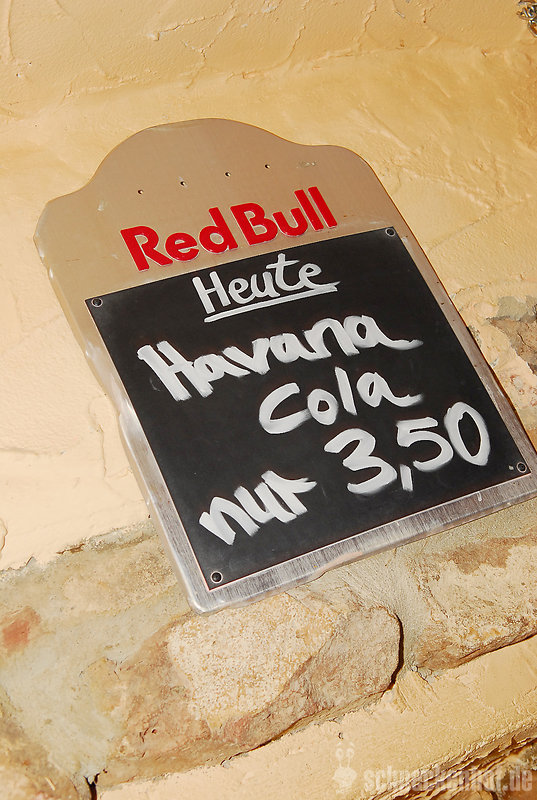 Red Bull
Heute
Havana
Cola
nur 3,50